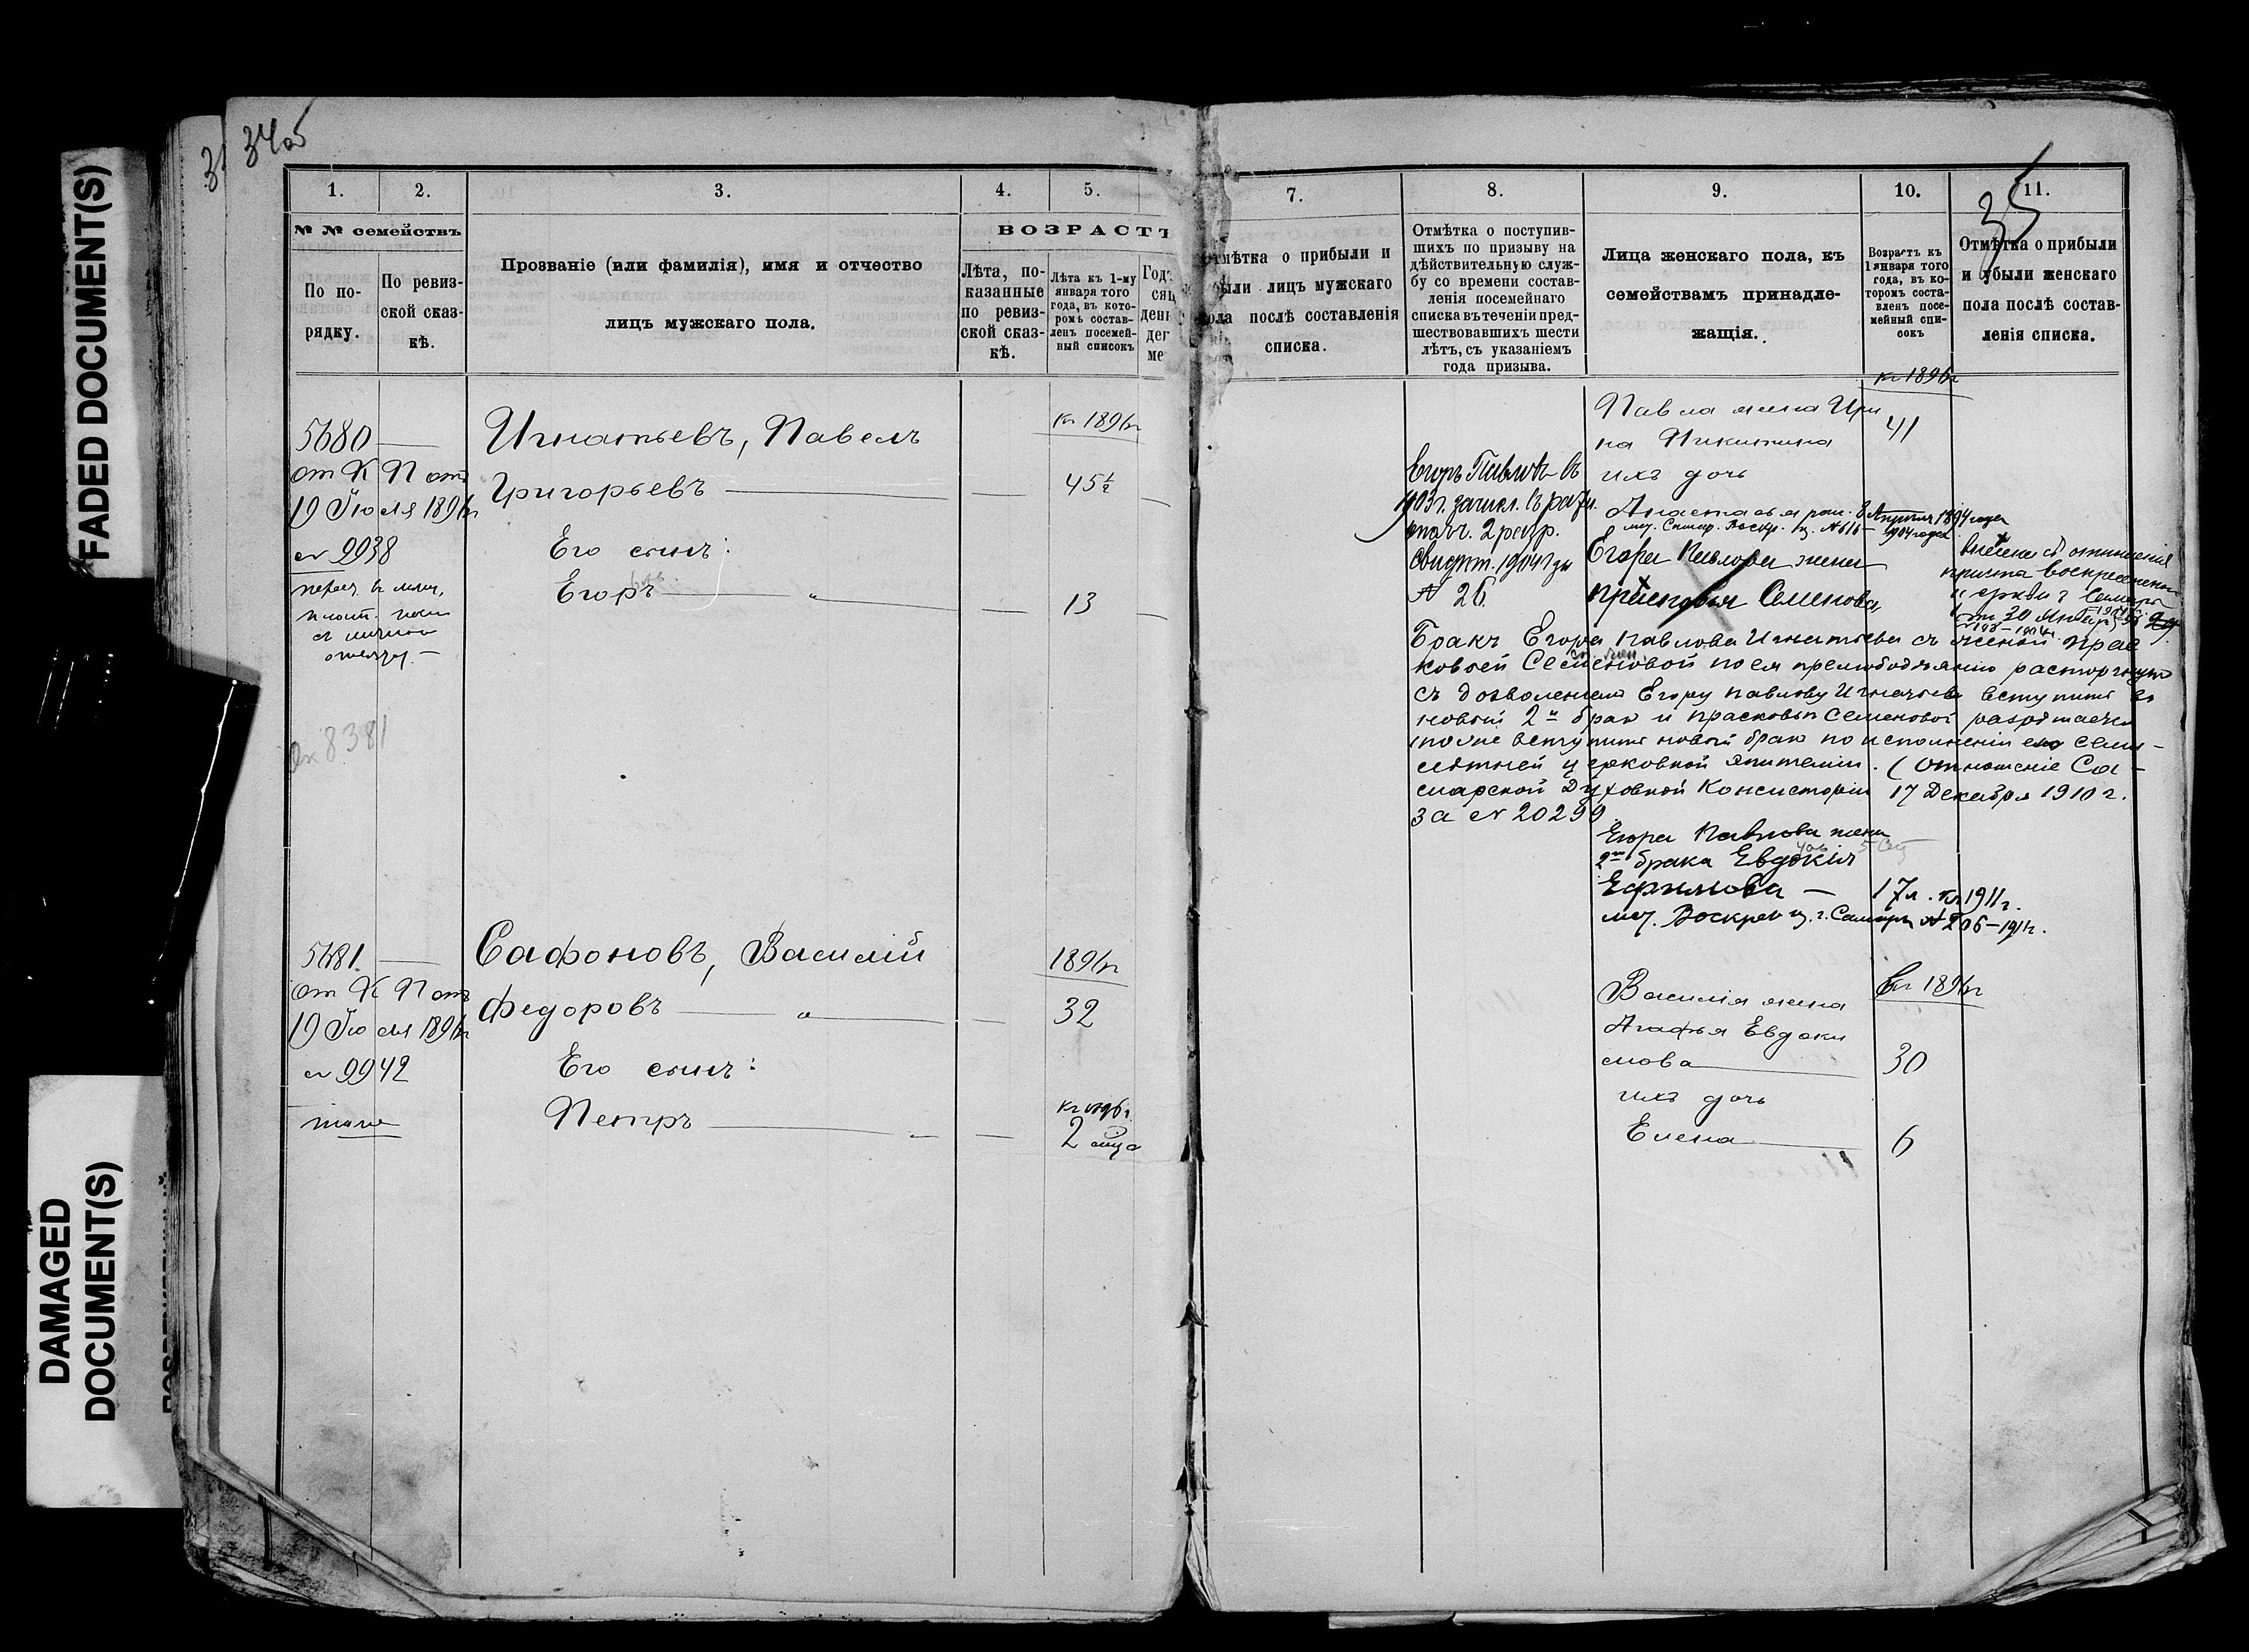 FADED DOCUMENT(S)
DAMAGED
DOCUMENT(S)
34об
35
1.
2.
3.
4.
5.
7.
8.
9.
10.
11.
№ № семействъ
По по-
рядку.
По ревиз-
ской сказ-
кѣ.
Прозваніе (или фамилія), имя и отчество
лицъ мужскаго пола.
ВОЗРАСТ
Лѣта, по-
казанные
по ревиз-
ской сказ-
кѣ.
Лѣта къ 1-му
января того
года, въ кото-
ромъ состав-
ленъ посемей-
ный списокъ
мѣтка о прибыли и
были лицъ мужскаго
пола послѣ составленія
списка.
Отмѣтка о поступив-
шихъ по призыву на
дѣйствительную служ-
бу со времени состав-
ленія посемейнаго
списка въ теченіи пред-
шествовавшихъ шести
лѣтъ, съ указаніемъ
года призыва.
Лица женскаго пола, къ
семействамъ принадле-
жащія.
Возрастъ къ
1 января того
года, въ ко-
торомъ соста-
вленъ посе-
мейный спи-
сокъ
Отмѣтка о прибыли
и убыли женскаго
пола послѣ состав-
ленія списка.
5680
от К П от
19 Июля 1896 г
№ 9938
Игнатьевъ, Павелъ
Григорьевъ
Его сынъ:
Егоръ
къ 1896 г
45 ½
13
8381
Егоръ Павловъ въ
1903 г. зачисл. въ
ратн. 2 разр.
Свидѣт. 1904 г за
№ 26
къ 1896 г
Павла жена Ири
на Никитина
41
ихъ дочь
Анастасья рож. 8 Апрѣля 1894 года
Егора Павлова жена
Прасковья Семенова
внесена съ отношенія
причта Воскресенской
церкви г Самары
Бракъ Егора Павлова Игнатьева съ женой Прас
ковьей Семеновой по ея прелюбодѣянію расторгнутъ
съ дозволеніемъ Егору Павлову Игнатьеву вступить въ
новый 2й бракъ и Прасковьи Семеновой разрѣшается
вступить новый бракъ по исполненіи ею семи-
лѣтней церковной эпитеміи. (Отношеніе Са-
марской Духовной Консисторіи 17 Декабря 1910 г.
за № 20299
Егора Павлова жена
2го брака Евдокія
Ефимова — 17 л. къ 1911 г.
мет. Воскрес ц. г. Самары № 206—1911 г.
5681.
от К П от
19 Июля 1896 г
№ 9942
тоже
Сафоновъ, Василій
Федоровъ
Его сынъ:
Петръ
1896 г
32
къ 1896 г
2 мѣс
Василія жена
Агафья Евдоки
мова
къ 1896 г
30
ихъ дочь
Елена
6